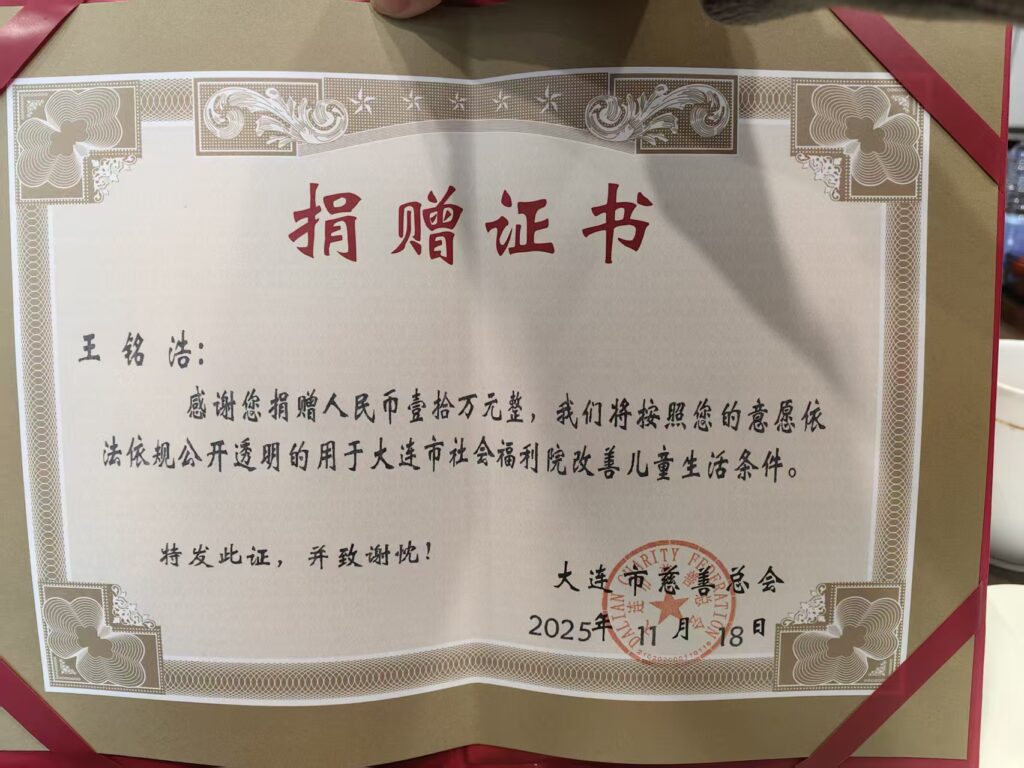 捐赠证书
王铭浩:
感谢您捐赠人民币壹拾万元整,我们将按照您的意愿依
法依规公开透明的用于大连市社会福利院改善儿童生活条件。
特发此证,并致谢忱!
大连市慈善总会
DALIAN CHARITY FEDERATION
2025年 11月 18日